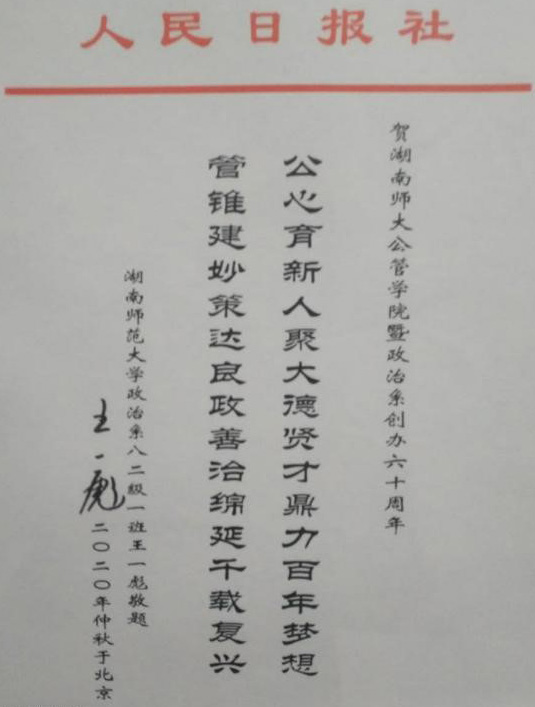 人民日报社
贺湖南师大公管学院暨政治系创办六十周年
公心育新人聚大德贤才鼎力百年梦想
管锥建妙策达良政善治绵延千载复兴
湖南师范大学政治系八二级一班王一彪敬题
王一彪
二〇二〇年仲秋于北京